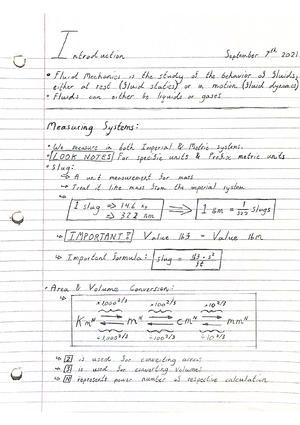 Introduction September 7th 2021
• Fluid Mechanics is the study of the behavior of fluids,
either at rest (fluid statics) or in motion (fluid dynamics)
• Fluids can either be liquids or gases
Measuring Systems:
• We measure in both Imperial & Metric systems.
• LOOK NOTES For specific units & Prefix metric units
• Slug:
↳ A unit measurement for mass
↳ Treat it like mass from the imperial system
↳
1 slug => 14.6 kg
=> 32.2 lbm
=> 1 lbm = 1/32.2 slugs
↳ IMPORTANT!! Value lbf = Value lbm
↳ Important formula: slug = lbf · s² / ft
• Area & Volume Conversion:
↳
×1000^2/3 ×100^2/3 ×10^2/3
Km^N ⇄ m^N ⇄ cm^N ⇄ mm^N
÷1000^2/3 ÷100^2/3 ÷10^2/3
↳ 2 is used for converting areas
↳ 3 is used for converting volumes
↳ N represents power number of respective calculation